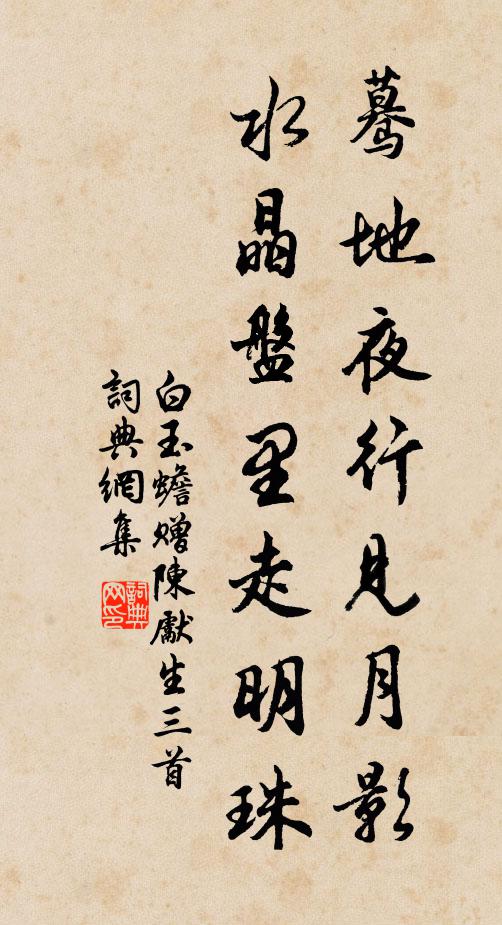 蓦地夜行見月影
水晶盤里走明珠
白玉蟾赠陳獻生三首
詞典網集
詞典网印